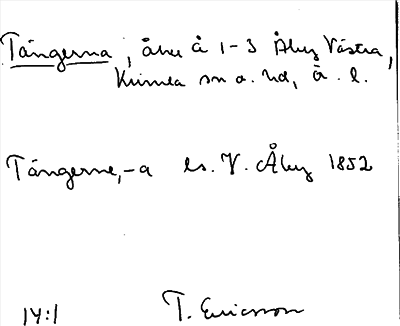 Tängerna, åker å 1-3 Åby Västra,
Kumla sn o. hd, Ö. l.
Tängerne,-a ls. V. Åby 1852
14:1 T. Ericsson